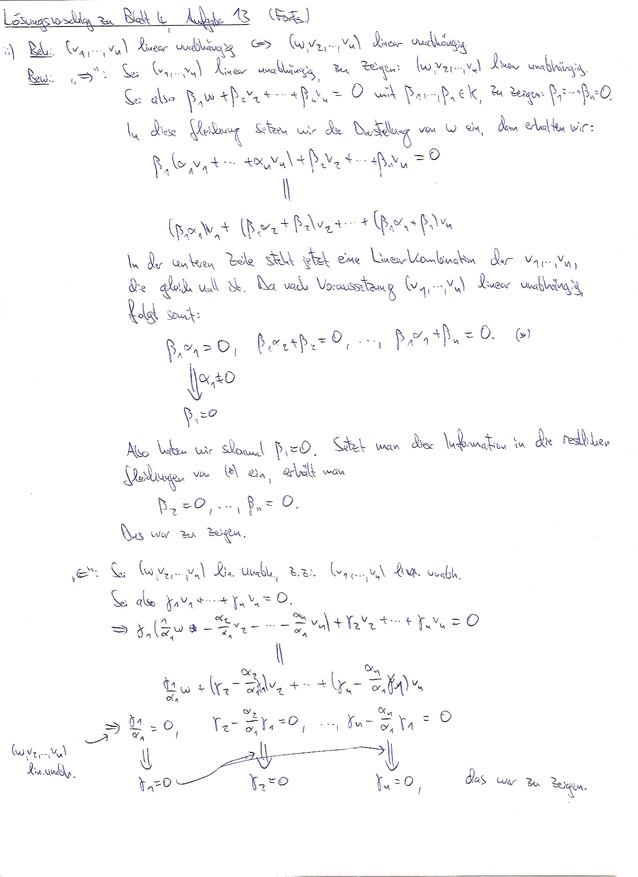 Lösungsvorschlag zu Blatt 4, Aufgabe 13 (Forts.)
ii) Beh.: (v₁,...,vₙ) linear unabhängig ⇔ (w,v₂,...,vₙ) linear unabhängig
Bew.: „⇒": Sei (v₁,...,vₙ) linear unabhängig, zu zeigen: (w,v₂,...,vₙ) linear unabhängig.
Sei also β₁w + β₂v₂ + ··· + βₙvₙ = 0 mit β₁,...,βₙ ∈ K, zu zeigen: β₁=···=βₙ=0.
In diese Gleichung setzen wir die Darstellung von w ein, dann erhalten wir:
β₁(α₁v₁ + ··· + αₙvₙ) + β₂v₂ + ··· + βₙvₙ = 0
||
(β₁α₁)v₁ + (β₁α₂ + β₂)v₂ + ··· + (β₁αₙ + βₙ)vₙ
In der unteren Zeile steht jetzt eine Linearkombination der v₁,...,vₙ,
die gleich null ist. Da nach Voraussetzung (v₁,...,vₙ) linear unabhängig,
folgt somit:
β₁α₁ = 0, β₁α₂ + β₂ = 0, ..., β₁α₁ + βₙ = 0. (*)
⇓ α₁≠0
β₁=0
Also haben wir schonmal β₁=0. Setzt man diese Information in die restlichen
Gleichungen von (*) ein, erhält man
β₂ = 0, ..., βₙ = 0.
Das war zu zeigen.
„⇐": Sei (w,v₂,...,vₙ) lin. unabh., z.z.: (v₁,...,vₙ) lin. unabh.
Sei also γ₁v₁ + ··· + γₙvₙ = 0.
⇒ γ₁(1/α₁ w - α₂/α₁ v₂ - ··· - αₙ/α₁ vₙ) + γ₂v₂ + ··· + γₙvₙ = 0
||
γ₁/α₁ w + (γ₂ - α₂/α₁ γ₁)v₂ + ··· + (γₙ - αₙ/α₁ γ₁)vₙ
⇒ γ₁/α₁ = 0, γ₂ - α₂/α₁ γ₁ = 0, ..., γₙ - αₙ/α₁ γ₁ = 0
(w,v₂,...,vₙ)
lin. unabh.
⇓ ⇓ ⇓
γ₁=0 γ₂=0 γₙ=0, das war zu zeigen.